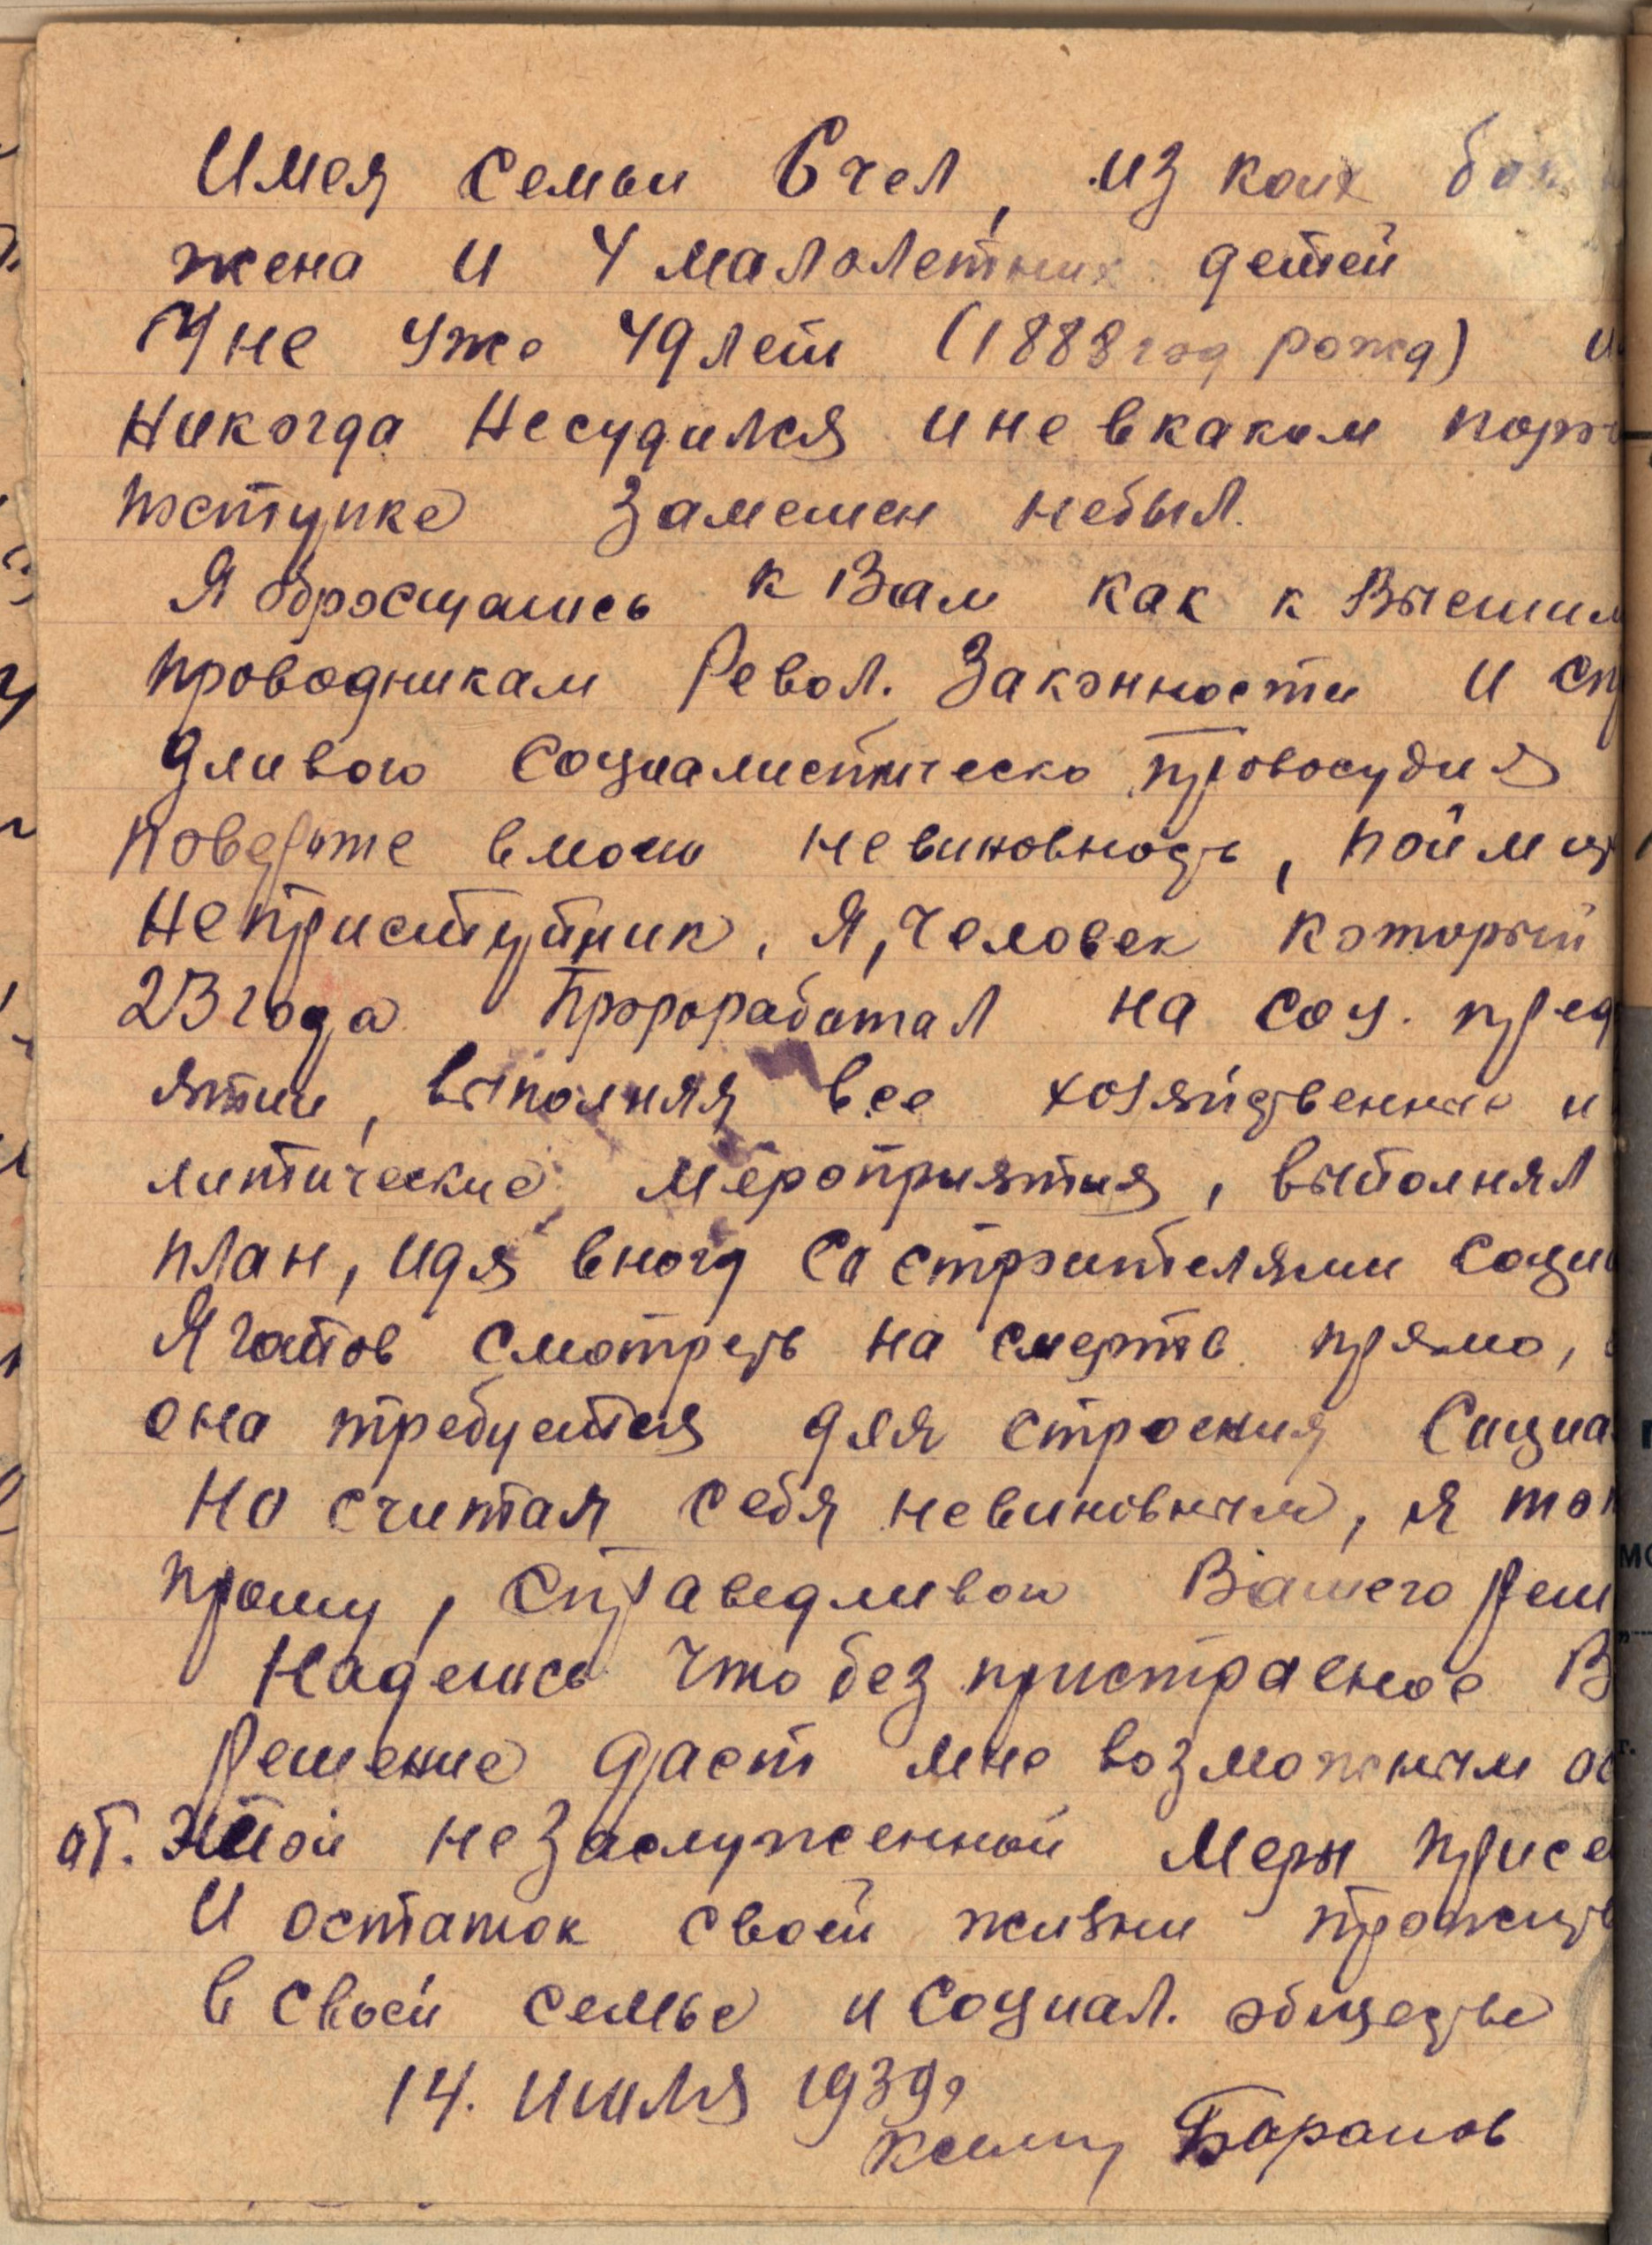 Имея семьи 6 чел, из коих бол
жена и 4 малолетних детей
Мне уже 49 лет (1888 год рожд) и
Никогда Несудился и не вкаком поро
поступке замешен небыл.
Я обращаюсь к Вам как к Высшим
проводникам Револ. Законности и спр
дливого социалистическо провосудия
поверьте вмою невиновность, пойми
Не приступник. Я, человек который
23 года Пророработал на соц. пред
ятии, выполняя все хозяйственные и
литические мероприятия, выполнял
план, идя вногу со строителями соци
Я готов смотреть на смерть прямо,
она требуется для строения Социа
Но считая себя невиновным, я то
прошу, справедливои Вашего реш
Надеюсь что безпристрасное В
решение даст мне возможным ос
от. этой незаслуженной меры присе
И остаток своей жизни прожить
в своей семье и социал. обществе
14. июля 1939г
Баранов